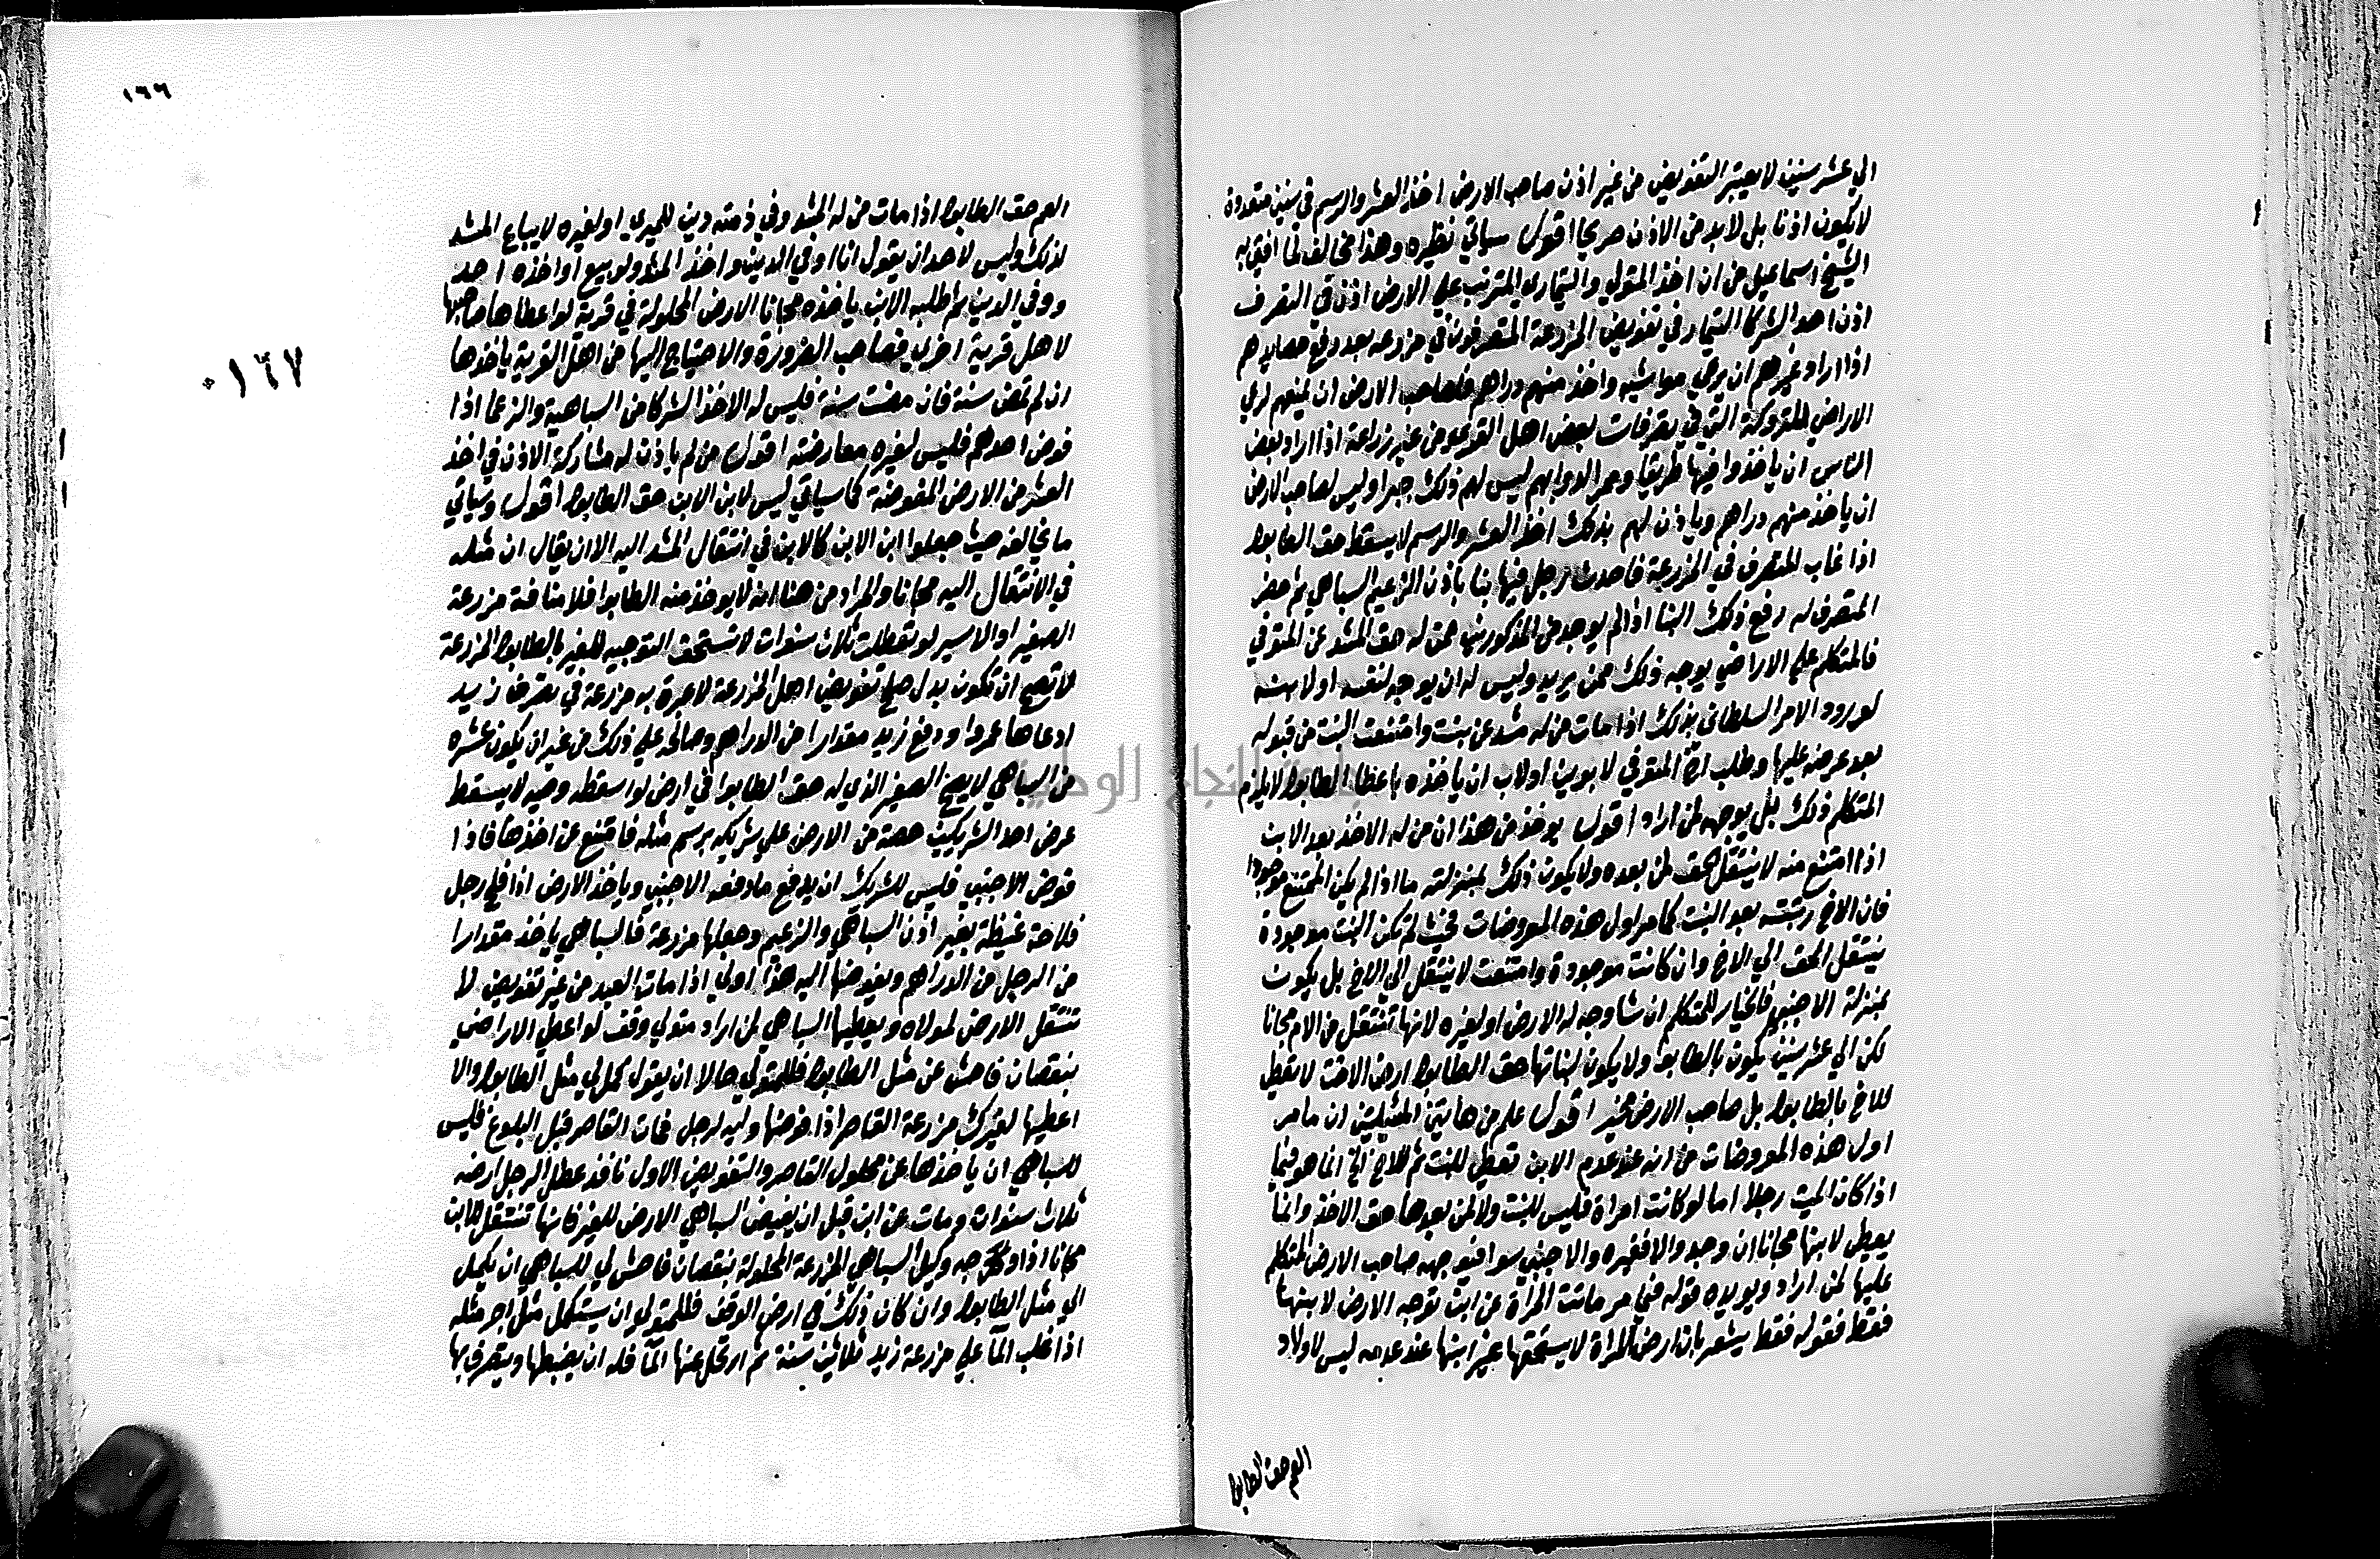 الي عشر سنين لا يعتبر التفويض من غير اذن صاحب الارض اخذ العشر والرسم في سنين متعددة
لا يكون اذنا بل لا بد من الاذن صريحا اقول سياتي نظيره وهذا مخالف لما افتي به
الشيخ اسماعيل من ان اخذ المتولي والتيماري المترتب علي الارض اذن في التصرف
اذن احد الشركا التيمار في تفويض المزرعة المتصرفون في مزرعه بعد دفع حصاليدهم
اذا اراد غيرهم ان يرعي مواشيه واخذ منهم دراهم فلصاحب الارض ان يمنعهم لرعي
الاراضي المتروكة التي في تصرفات بعض اهل القري عوض عن زراعة اذا اراد بعض
الناس ان ياخذوا فيها طريقا وممر الدوابهم ليس لهم ذلك جبرا وليس لصاحب الارض
ان ياخذ منهم دراهم وياذن لهم بذلك اخذ العشر والرسم لا يسقط حق الطابو
اذا غاب المتصرف في المزرعة فاحدث رجل فيها بنا باذن الزعيم السباهي ثم حضر
المتصرف له رفع ذلك البنا اذا لم يوجد من المذكورين ممن له حق المشد عن المتوفي
فالمتكلم علي الاراضي يوجه ذلك ممن يريد وليس له ان يوجه لنفسه او لابنه
لورود الامر السلطاني بذلك اذا مات من له مشد عن بنت وامتنعت البنت من قبوله
بعد عرضه عليها وطلب اخ المتوفي لابوين او لاب ان ياخذه باعطا الطابو لا يلزم
المتكلم ذلك بل يوجهه لمن اراد اقول يوخذ من هذا ان من له الاخذ بعد الابن
اذا امتنع منه لا ينتقل الحق لمن بعده ولا يكون ذلك بمنزلته ما اذا لم يكن الممتنع موجودا
فان الاخ رتبته بعد البنت كما مر اول هذه المعروضات فحيث لم تكن البنت موجودة
ينتقل الحق الي الاخ وان كانت موجودة وامتنعت لا ينتقل الي الاخ بل يكون
بمنزلة الاجنبي فالخيار للمتكلم ان شا وجه له الارض او لغيره لانها تنتقل من الام مجانا
لكن الي عشر سنين يكون بالطابو ولا يكون لبناتها حق الطابو ارض الاخت لا تعطي
للاخ بالطابو بل صاحب الارض مخير اقول علم من هاتين المسئلتين ان ما مر
اول هذه المعروضات من انه عند عدم الابن تعطي للبنت ثم للاخ الخ انما هو فيما
اذا كان الميت رجلا اما لو كانت امراة فليس للبنت ولا لمن بعدها حق الاخذ وانما
يعطي لابنها مجانا ان وجد والا فغيره والاجنبي سوا فيوجهه صاحب الارض المتكلم
عليها لمن اراد ويويده قوله فيما مر ماتت المراة عن ابن توجه الارض لابنها
فقط فقوله فقط يشعر بان ارض المراة لا يستحقها غير ابنها عند عدمه ليس لاولاد
العم حق الطابو
١٦٦
١٦٧
العم حق الطابو اذا مات من له المشد وفي ذمته دين للميري او لغيره لا يباع المشد
لذلك وليس لاحد ان يقول انا اوفي الدين واخذ المشد ولو بيع او اخذه احد
ووفي الدين ثم طلبه الابن ياخذه مجانا الارض المحلولة في قرية لو اعطاها صاحبها
لاهل قرية اخري فصاحب الضرورة والاحتياج اليها من اهل القرية ياخذها
ان لم تمض سنة فان مضت سنة فليس له الاخذ الشركا من السباهية والزعما اذا
فوض احدهم فليس لغيره معارضته اقول من لم ياذن له مشاركة الاذن في اخذ
العشر من الارض المفوضة كما سياتي ليس لابن الابن حق الطابو اقول وسياتي
ما يخالفه حيث جعلوا ابن الابن كالابن في انتقال المشد اليه الا ان يقال ان مثله
في الانتقال اليه مجانا والمراد من هنا انه لا يوخذ منه الطابو فلا منافة مزرعة
الصغير او الاسير لو تعطلت ثلاث سنوات لا تستحق التوجيه للغير بالطابو المزرعة
لا تصح ان تكون بدل صلح تفويض اهل المزرعة لا عبرة به مزرعة في تصرف زيد
ادعاها عمرو ودفع زيد مقدارا من الدراهم وصالحه علي ذلك من غير ان يكون عشره
من السباهي لا يصح الصغير الذي له حق الطابو في ارض لو اسقطه وصيه لا يسقط
عرض احد الشريكين حصة من الارض علي شريكه برسم مثله فامتنع عن اخذها فاذا
فوض الاجنبي فليس للشريك ان يدفع ما دفعه الاجنبي وياخذ الارض اذا فلح رجل
فلاحة غيظة بغير اذن السباهي والزعيم وجعلها مزرعة فالسباهي ياخذ مقدارا
من الرجل من الدراهم ويفوضها اليه هذا اولي اذا مات العبد من غير تفويض لا
تنتقل الارض لمولاه ويعطيها السباهي لمن اراد متولي وقف لو اعطي الاراضي
بنقصان فاحش عن مثل الطابو فللمتولي حالا ان يقول كمل لي مثل الطابو والا
اعطيها لغيرك مزرعة القاصر اذا فوضها وليه لرجل فمات القاصر قبل البلوغ فليس
للسباهي ان ياخذها عن محلول القاصر والتفويض الاول نافذ عطل الرجل ارضه
ثلاث سنوات ومات عن ابن قبل ان يفوض السباهي الارض للغير فانها تنتقل للابن
مجانا اذا وجه وكيل السباهي المزرعة المحلولة بنقصان فاحش لي للسباهي ان يكمل
الي مثل الطابو وان كان ذلك في ارض الوقف فللمتولي ان يستكمل مثل اجر مثله
اذا غلب المآ علي مزرعة زيد ثلاثين سنة ثم ارتحل عنها المآ فله ان يضبطها ويتصرف بها